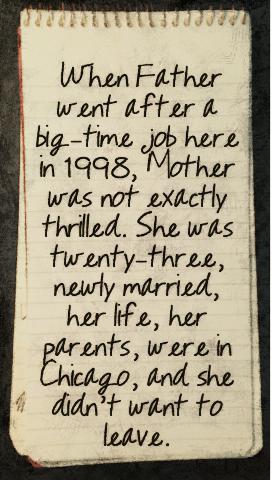 When Father
went after a
big-time job here
in 1998, Mother
was not exactly
thrilled. She was
twenty-three,
newly married,
her life, her
parents, were in
Chicago, and she
didn't want to
leave.